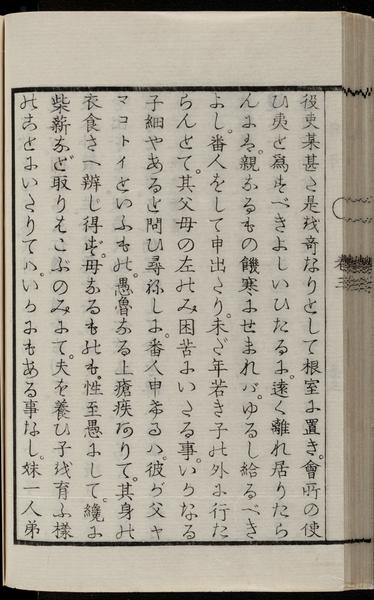 役吏某甚タ是を奇なりとして根室に置き。會所の使
ひ夷と爲すべきよしいひたるに。遠く離れ居りたら
んには。親なるもの饑寒にせまれバ。ゆるし給るべき
よし。番人をして申出たり。未だ年若き子の外に行た
らんとて。其父母の左のみ困苦にいたる事。いかなる
子細やあると問ひ尋ねしに。番人申けるハ。彼が父ヤ
マコトイといふもの。愚魯なる上瘡疾ありて。其身の
衣食さへ辨じ得ず。母なるものも。性至愚にして。纔に
柴薪など取りはこぶのみにて。夫を養ひ子を育ふ樣
のことにいたりてハ。いかにもある事なし。妹一人弟
卷三